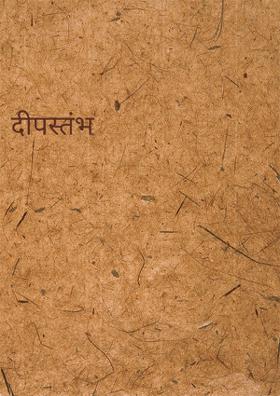 दीपस्तंभ